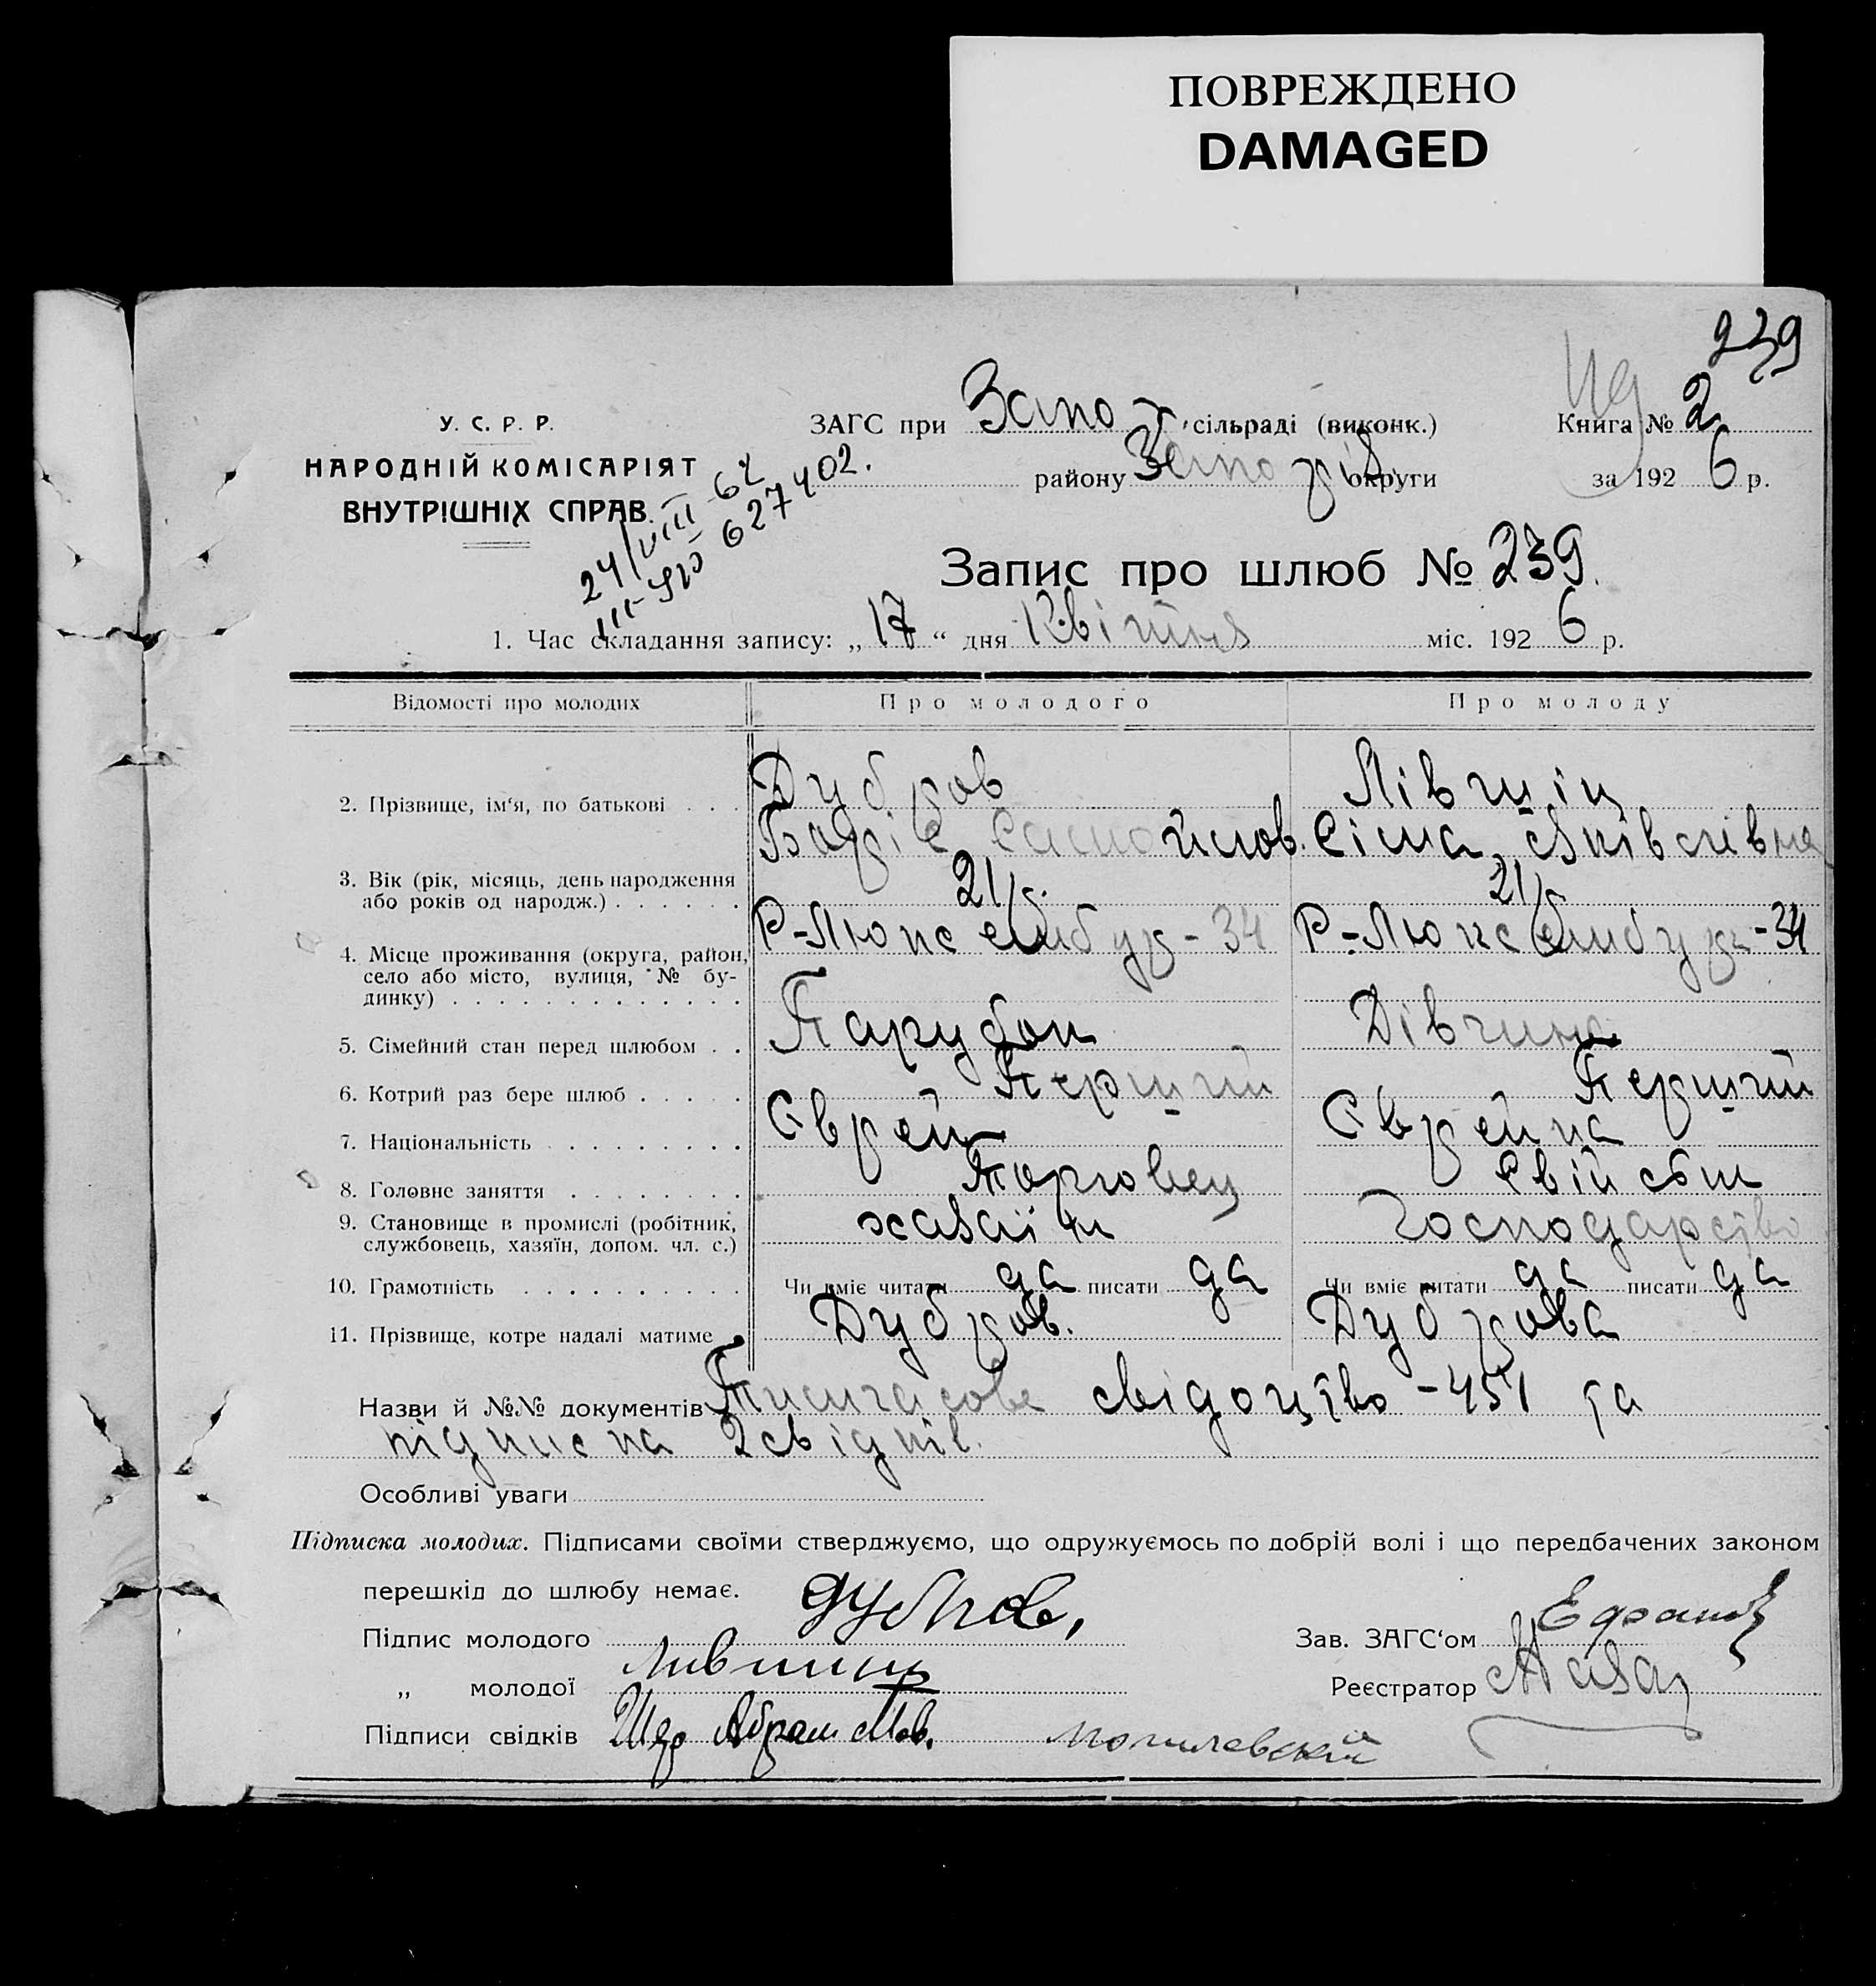 ПОВРЕЖДЕНО
DAMAGED
239
У. С. Р. Р.
НАРОДНІЙ КОМІСАРІЯТ
ВНУТРІШНІХ СПРАВ.
24/VIII-64
627402.
ЗАГС при Запо сільраді (виконк.)
району Запоріз округи
Книга № 2
за 1926 р.
Запис про шлюб № 239.
1. Час складання запису: „17“ дня Квітня міс. 1926 р.
Відомості про молодих Про молодого Про молоду
2. Прізвище, ім‘я, по батькові . . . Дубров Лівшіц
Самойлов. Сіма Яківлівна
3. Вік (рік, місяць, день народження або років од народж.) . . . . . . 21 р. 21 р.
4. Місце проживання (округа, район, село або місто, вулиця, № будинку) . . . . . . . . . . . . . Р-Люксембург-34 Р-Люксембург-34
5. Сімейний стан перед шлюбом . . Парубок Дівчина
6. Котрий раз бере шлюб . . . . . Перший Перший
7. Національність . . . . . . . . . Єврей Єврейка
8. Головне заняття . . . . . . . . Торговец Свійське
9. Становище в промислі (робітник, службовець, хазяїн, допом. чл. с.) хазяїн Господарство
10. Грамотність . . . . . . . . . . Чи вміє читати да писати да Чи вміє читати да писати да
11. Прізвище, котре надалі матиме . Дубров. Дуброва
Назви й №№ документів Тимчасове свідоцтво - 451 та
підписка 2 свідків.
Особливі уваги
Підписка молодих. Підписами своїми стверджуємо, що одружуємось по добрій волі і що передбачених законом
перешкід до шлюбу немає.
Підпис молодого Дубров,
Зав. ЗАГС‘ом
„ молодої Лившиць
Реєстратор
Підписи свідків Абрам Могилевский